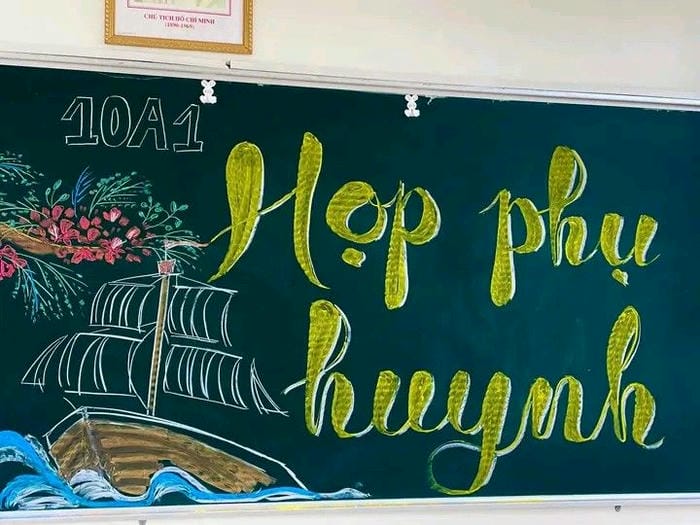 CHỦ TỊCH HỒ CHÍ MINH
(1890-1969)
10A1
Họp phụ
huynh